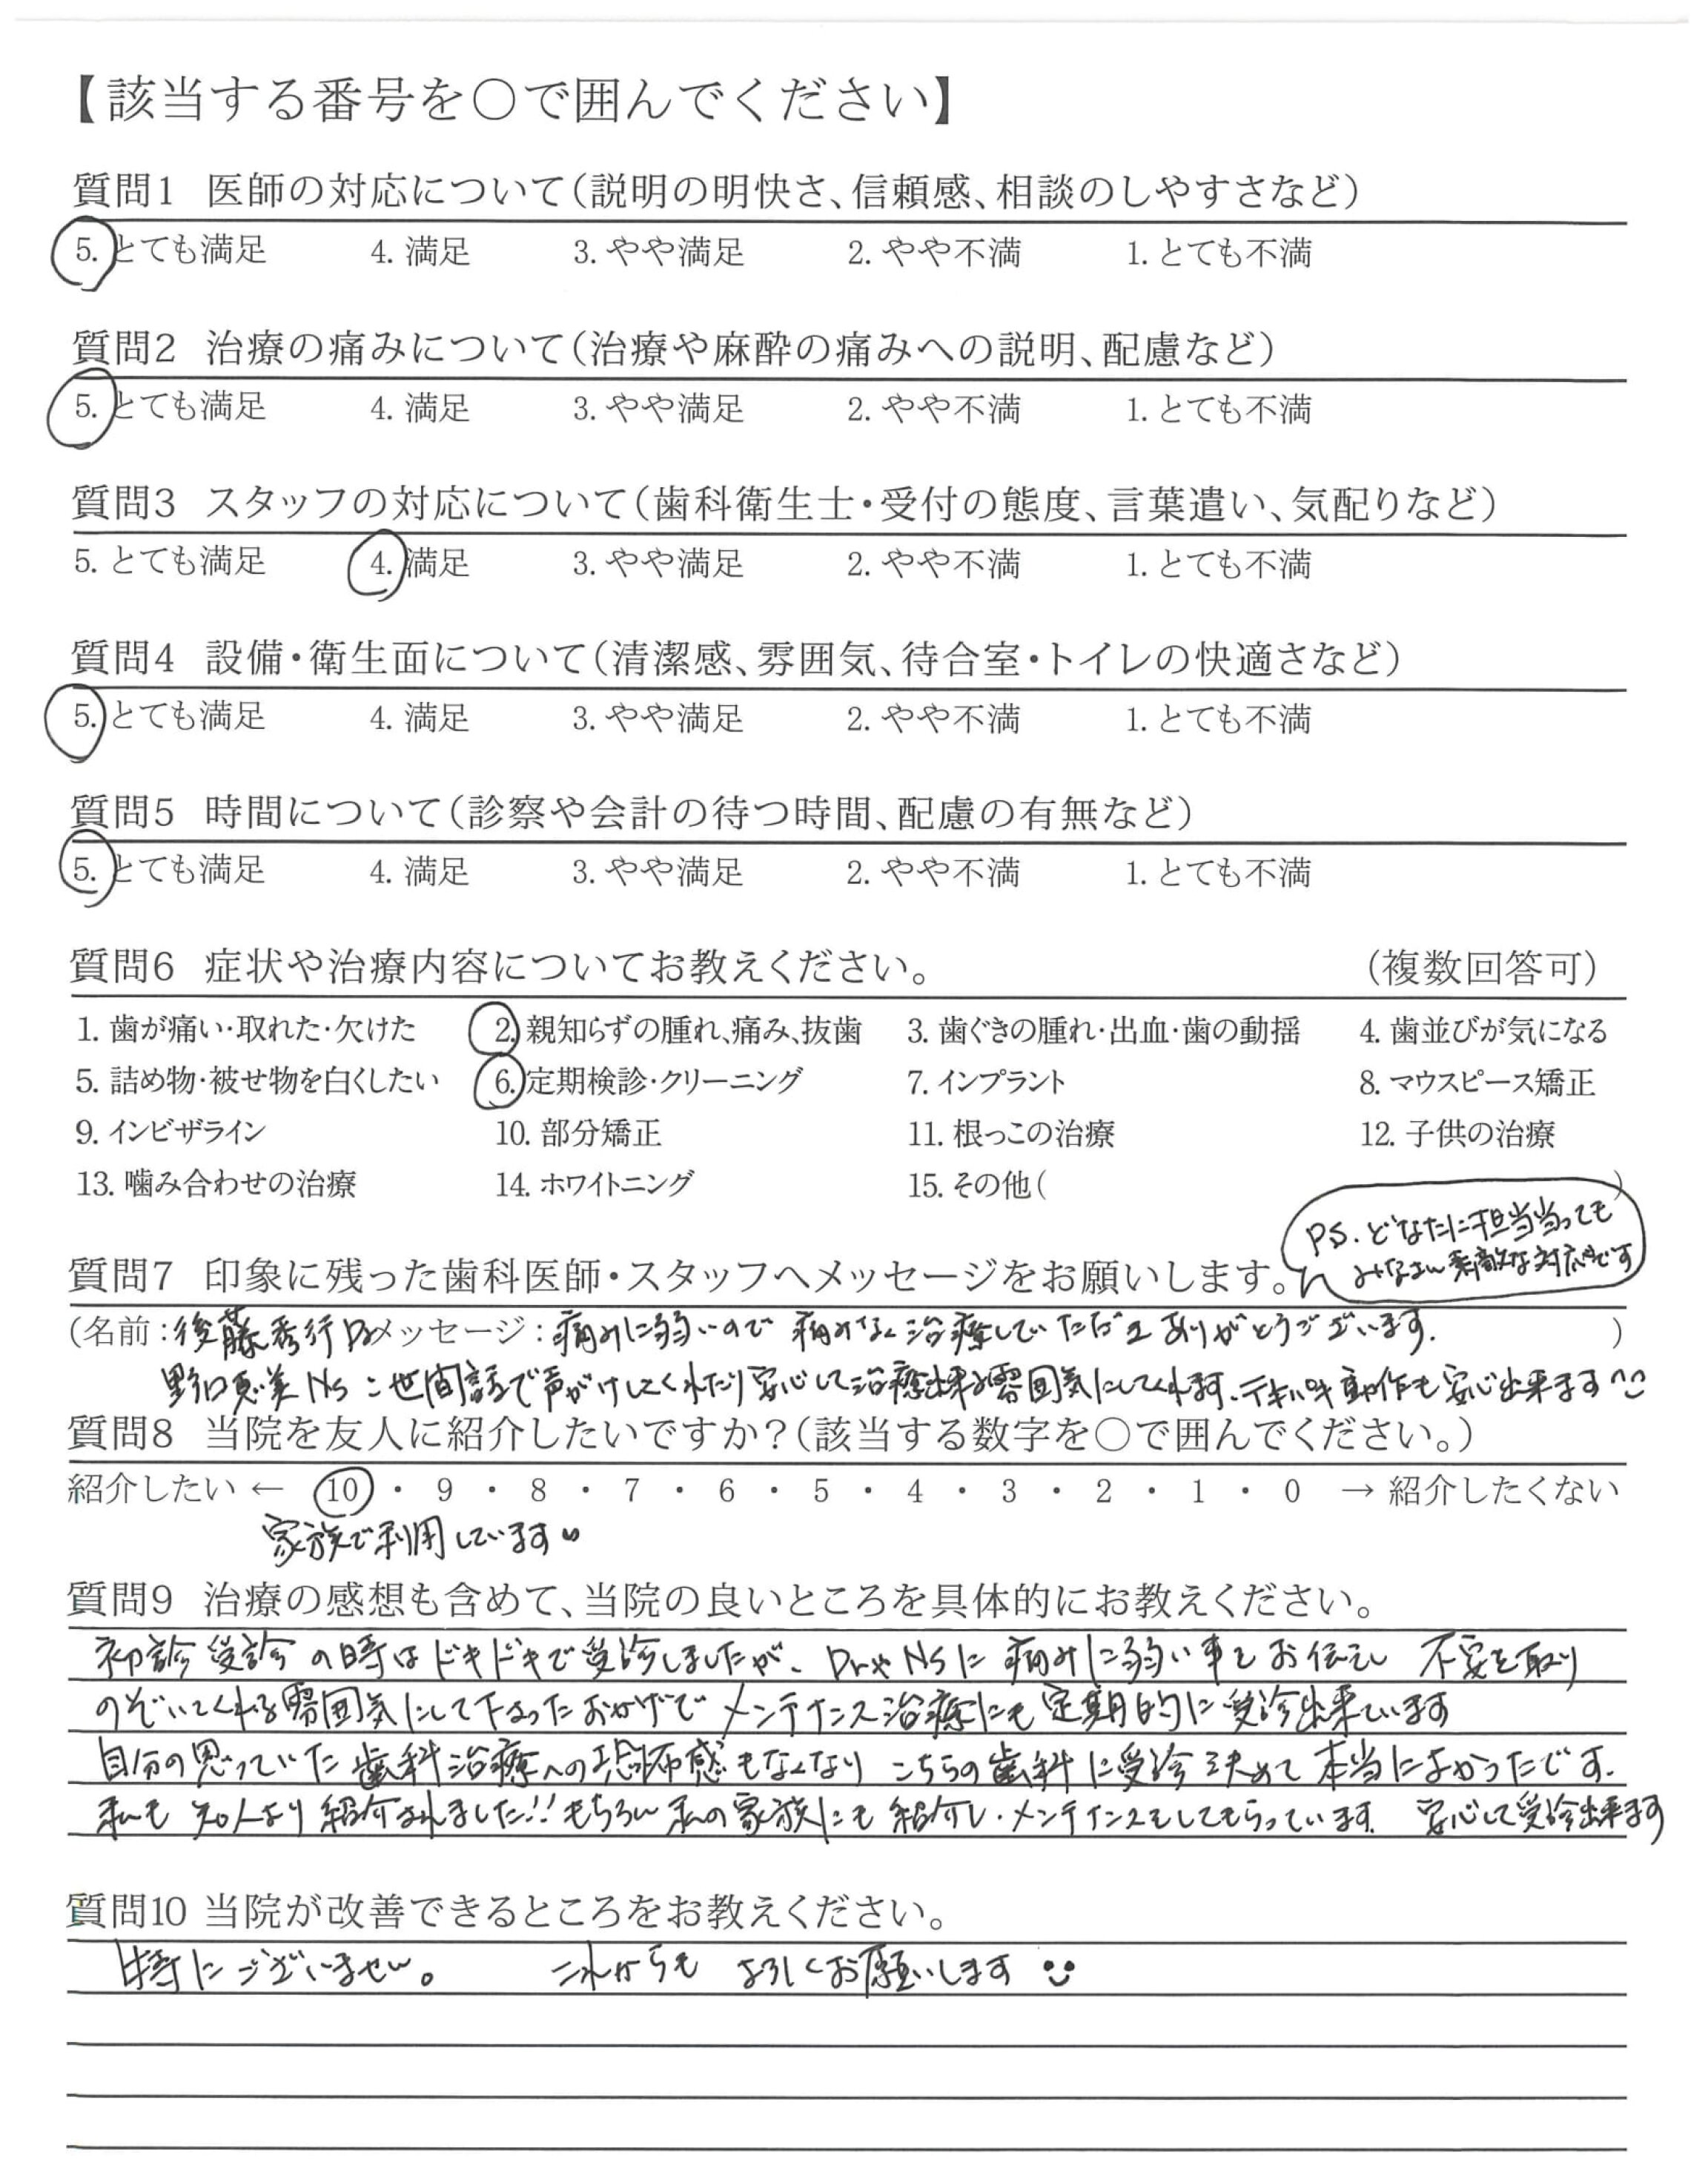 【該当する番号を〇で囲んでください】
質問1 医師の対応について(説明の明快さ、信頼感、相談のしやすさなど)
5. とても満足 4. 満足 3. やや満足 2. やや不満 1. とても不満
質問2 治療の痛みについて(治療や麻酔の痛みへの説明、配慮など)
5. とても満足 4. 満足 3. やや満足 2. やや不満 1. とても不満
質問3 スタッフの対応について(歯科衛生士・受付の態度、言葉遣い、気配りなど)
5. とても満足 4. 満足 3. やや満足 2. やや不満 1. とても不満
質問4 設備・衛生面について(清潔感、雰囲気、待合室・トイレの快適さなど)
5. とても満足 4. 満足 3. やや満足 2. やや不満 1. とても不満
質問5 時間について(診察や会計の待つ時間、配慮の有無など)
5. とても満足 4. 満足 3. やや満足 2. やや不満 1. とても不満
質問6 症状や治療内容についてお教えください。 (複数回答可)
1. 歯が痛い・取れた・欠けた 2. 親知らずの腫れ、痛み、抜歯 3. 歯ぐきの腫れ・出血・歯の動揺 4. 歯並びが気になる
5. 詰め物・被せ物を白くしたい 6. 定期検診・クリーニング 7. インプラント 8. マウスピース矯正
9. インビザライン 10. 部分矯正 11. 根っこの治療 12. 子供の治療
13. 噛み合わせの治療 14. ホワイトニング 15. その他( )
P.S. どなたに担当当っても
みなさん素敵な対応です
質問7 印象に残った歯科医師・スタッフへメッセージをお願いします。
(名前:後藤秀行Dr メッセージ:痛みに弱いので 痛みなく治療していただき ありがとうございます. )
野口恵美Ns:世間話で声がけしてくれたり安心して治療出来る雰囲気にしてくれます.テキパキ動作も安心出来ます^^
質問8 当院を友人に紹介したいですか?(該当する数字を〇で囲んでください。)
紹介したい ← 10 ・ 9 ・ 8 ・ 7 ・ 6 ・ 5 ・ 4 ・ 3 ・ 2 ・ 1 ・ 0 → 紹介したくない
家族で利用しています
質問9 治療の感想も含めて、当院の良いところを具体的にお教えください。
初診受診の時はドキドキで受診しましたが、DrやNsに痛みに弱い事をお伝えし 不安を取り
のぞいてくれる雰囲気にして下さったおかげでメンテナンス治療にも定期的に受診出来ています
自分の思っていた歯科治療への恐怖感もなくなり こちらの歯科に受診決めて本当によかったです.
私も知人より紹介されました!! もちろん私の家族にも紹介し・メンテナンスをしてもらっています. 安心して受診出来ます
質問10 当院が改善できるところをお教えください。
特にございません。 これからも よろしくお願いします